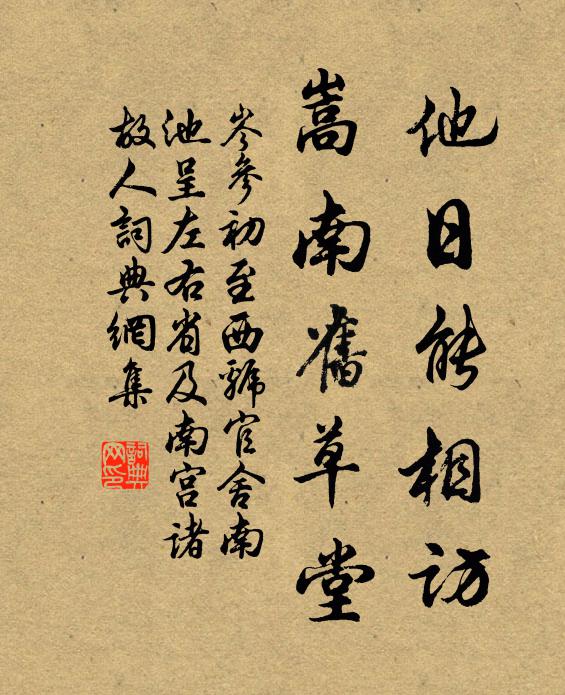 他日能相訪
嵩南舊草堂
岑參初至西虢官舍南
池呈左右省及南宮諸
故人詞典網集
詞典網印